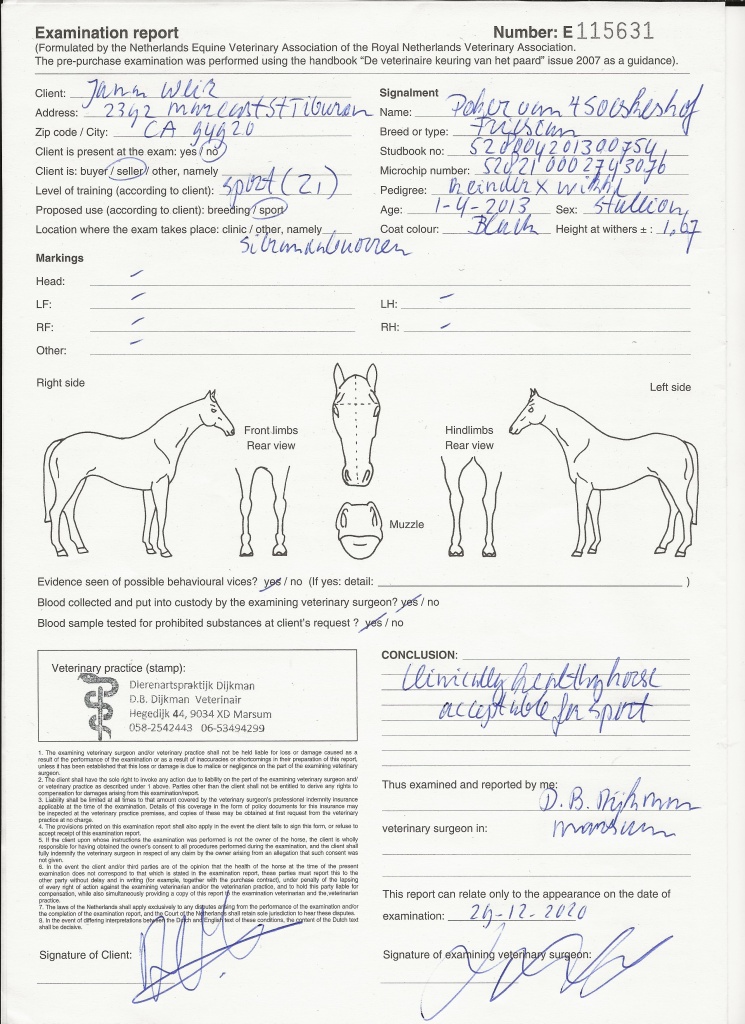 Examination report
Number: E 115631
(Formulated by the Netherlands Equine Veterinary Association of the Royal Netherlands Veterinary Association.
The pre-purchase examination was performed using the handbook “De veterinaire keuring van het paard” issue 2007 as a guidance).
Client: Weir
Address: 2392 St Tiburon
Zip code / City: CA 94920
Client is present at the exam: yes / no
Client is: buyer / seller / other, namely
Level of training (according to client): sport (Z1)
Proposed use (according to client): breeding / sport
Location where the exam takes place: clinic / other, namely
Signalment
Name: Poker van
Breed or type: Friesian
Studbook no: 528004201300754
Microchip number: 528210002743076
Pedigree: Reinder x
Age: 1-4-2013 Sex: Stallion
Coat colour: Black Height at withers ± : 1,67
Markings
Head:
LF:
LH:
RF:
RH:
Other:
Right side
Left side
Front limbs
Rear view
Hindlimbs
Rear view
Muzzle
Evidence seen of possible behavioural vices? yes / no (If yes: detail: )
Blood collected and put into custody by the examining veterinary surgeon? yes / no
Blood sample tested for prohibited substances at client's request ? yes / no
Veterinary practice (stamp):
Dierenartspraktijk Dijkman
D.B. Dijkman Veterinair
Hegedijk 44, 9034 XD Marsum
058-2542443 06-53494299
1. The examining veterinary surgeon and/or veterinary practice shall not be held liable for loss or damage caused as a
result of the performance of the examination or as a result of inaccuracies or shortcomings in their preparation of this report,
unless it has been established that this loss or damage is due to malice or negligence on the part of the examining veterinary
surgeon.
2. The client shall have the sole right to invoke any action due to liability on the part of the examining veterinary surgeon and/
or veterinary practice as described under 1 above. Parties other than the client shall not be entitled to derive any rights to
compensation for damages arising from this examination/report.
3. Liability shall be limited at all times to that amount covered by the veterinary surgeon's professional indemnity insurance
applicable at the time of the examination. Details of this coverage in the form of policy documents for this insurance may
be inspected at the veterinary practice premises, and copies of these may be obtained at first request from the veterinary
practice at no charge.
4. The provisions printed on this examination report shall also apply in the event the client fails to sign this form, or refuse to
accept receipt of this examination report.
5. If the client upon whose instructions the examination is performed is not the owner of the horse, the client is wholly
responsible for having obtained the owner's consent to all procedures performed during the examination, and the client shall
fully indemnify the veterinary surgeon in respect of any claim by the owner arising from an allegation that such consent was
not given.
6. In the event the client and/or third parties are of the opinion that the health of the horse at the time of the present
examination does not correspond to that which is stated in the examination report, these parties must report this to the
other party without delay and in writing (for example, together with the purchase contract), under penalty of the lapsing
of every right of action against the examining veterinarian and/or the veterinarian practice, and to hold this party liable for
compensation, while also simultaneously providing a copy of this report to the examination veterinarian and the veterinarian
practice.
7. The laws of the Netherlands shall apply exclusively to any disputes arising from the performance of the examination and/or
the completion of the examination report, and the Court of the Netherlands shall retain sole jurisdiction to hear these disputes.
8. In the event of differing interpretations between the Dutch and English text of these conditions, the content of the Dutch text
shall be decisive.
Signature of Client:
CONCLUSION:
Clinically healthy horse
acceptable for sport
Thus examined and reported by me:
D. B. Dijkman
veterinary surgeon in: Marssum
This report can relate only to the appearance on the date of
examination: 29-12-2020
Signature of examining veterinary surgeon: